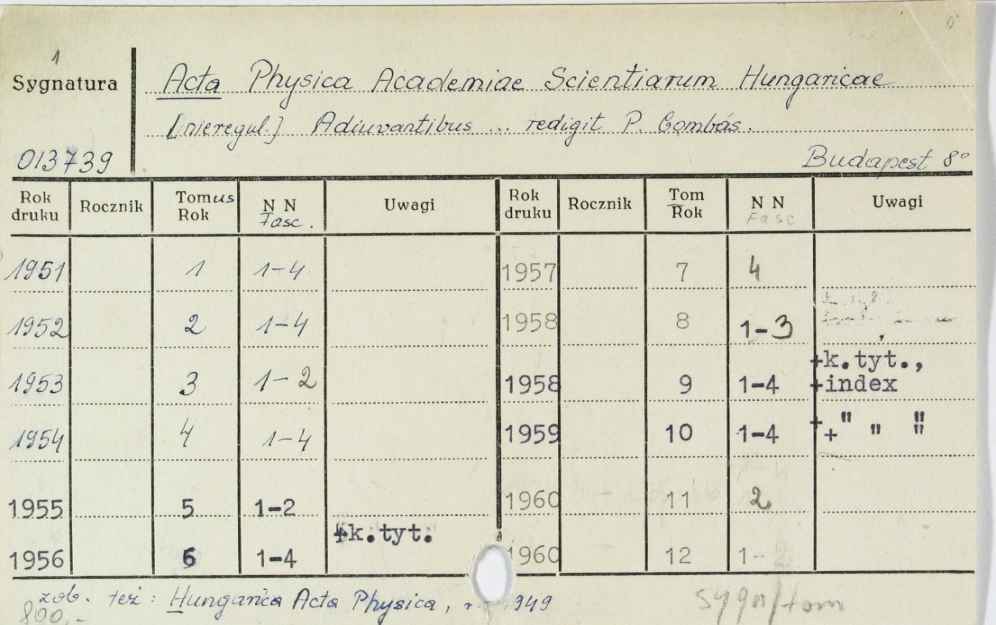 1
Sygnatura
Acta Physica Academiae Scientiarum Hungaricae
[nieregul.] Adiuvantibus ... redigit P. Gombás.
013739
Budapest 8°
Rok druku Rocznik Tomus Rok N N Fasc. Uwagi Rok druku Rocznik Tom Rok N N Fasc Uwagi
1951 1 1-4 1957 7 4
1952 2 1-4 1958 8 1-3
1953 3 1-2 1958 9 1-4 +k.tyt., +index
1954 4 1-4 1959 10 1-4 + + " " "
1955 5 1-2 1960 11 2
1956 6 1-4 +k.tyt. 1960 12 1-
zob. też: Hungarica Acta Physica, 949
800,- sygn/tom